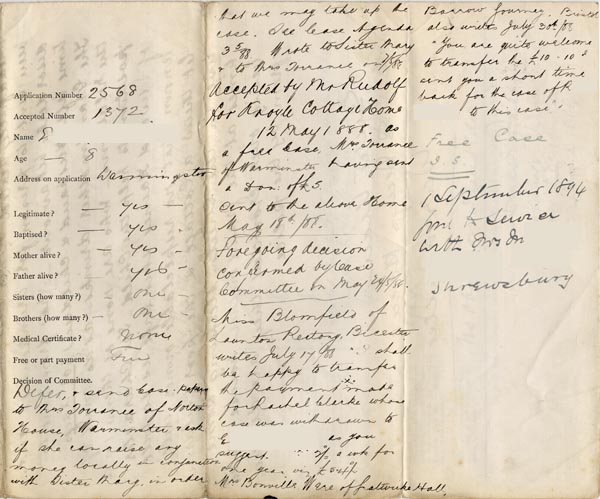 Application Number 2568
Accepted Number 1372
Name E
Age — 8
Address on application Warminster
Legitimate? — yes —
Baptised? — yes —
Mother alive? — yes —
Father alive? — yes —
Sisters (how many?) — one —
Brothers (how many?) — one —
Medical Certificate? None
Free or part payment Free
Decision of Committee.
Defer, & send Case-papers
to Mrs Torrance of Norton
House, Warminster & ask
if she can raise any
money locally in conjunction
with Sister Mary, in order
that we may take up the
case. See Case Agenda
Wrote to Sister Mary
& to Mrs Torrance
Accepted by Mr Rudolf
for Knoyle Cottage Home
12 May 1888. as
a free case, Mrs Torrance
of Warminster having sent
a Don: of £5.
Sent to the above Home
May 18th/88.
Foregoing decision
confirmed by Case
Committee on May
Miss Blomfield of
Launton Rectory, Bicester
writes July 17/88 " shall
be happy to transfer
the payment made
for Rachel Clarke whose
case was withdrawn to
E as you
suggest. a wk for
one year viz
Mrs Bonville Were of Hall,
Barrow Gurney. Bristol
also writes July 30th/88
"You are quite welcome
to transfer the £10.10s
sent you a short time
back for the case of R
to this case".
Free Case
1 September 1894
gone to Service
with Mrs M
Shrewsbury